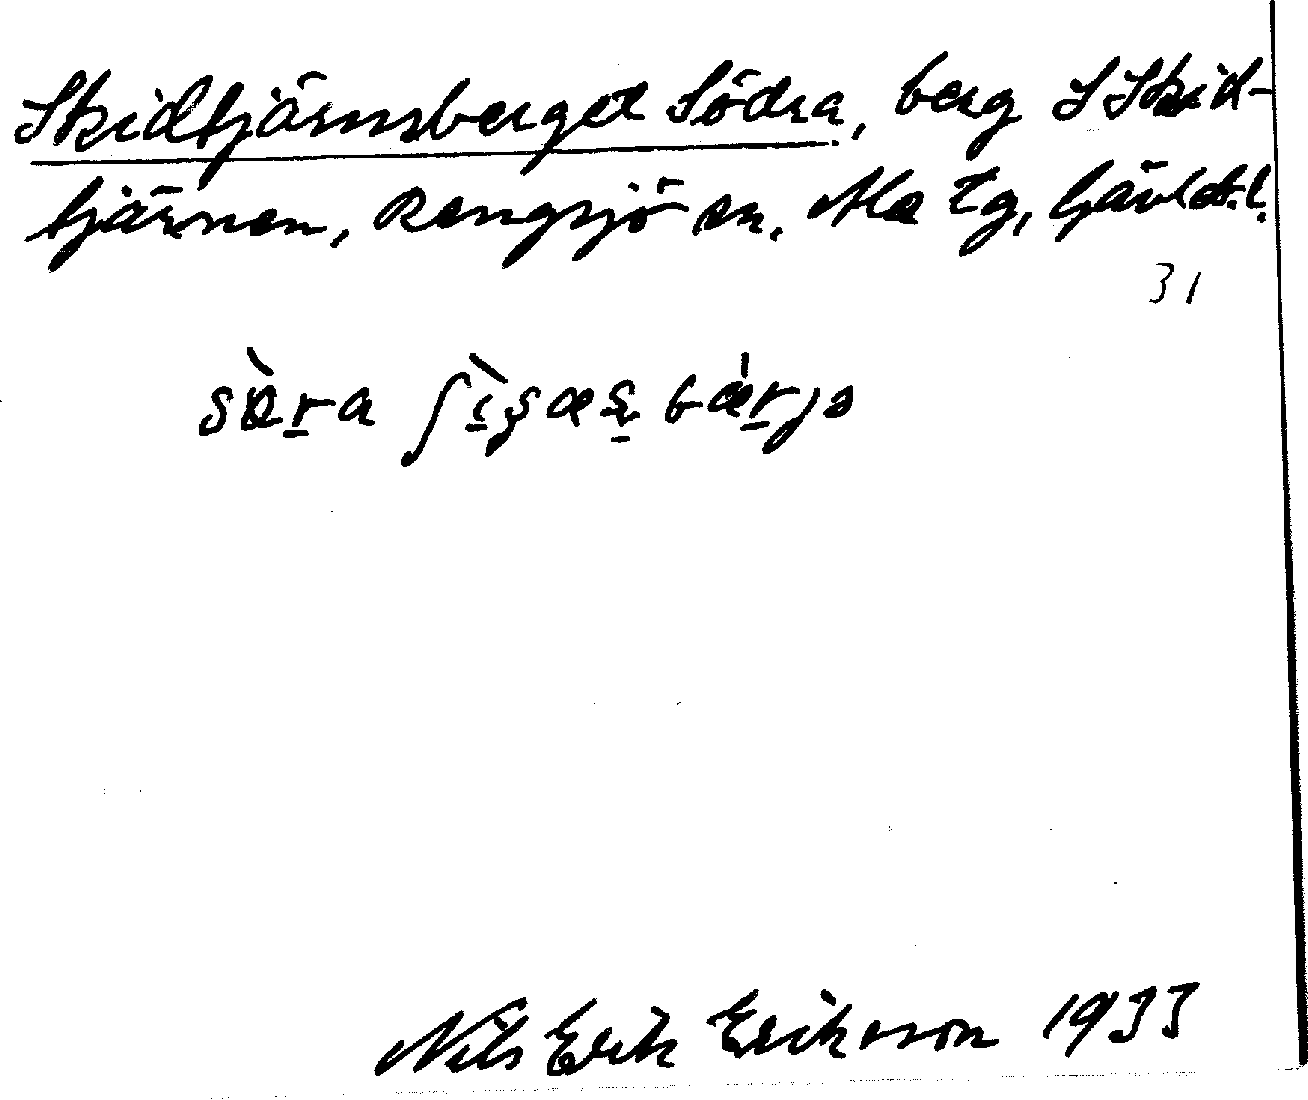 Skidtjärnsberget Södra, berg S Skid-
tjärnen, Rengsjö sn. Ala tg, Gävleb. l.
31
Nils Erik Eriksson 1933